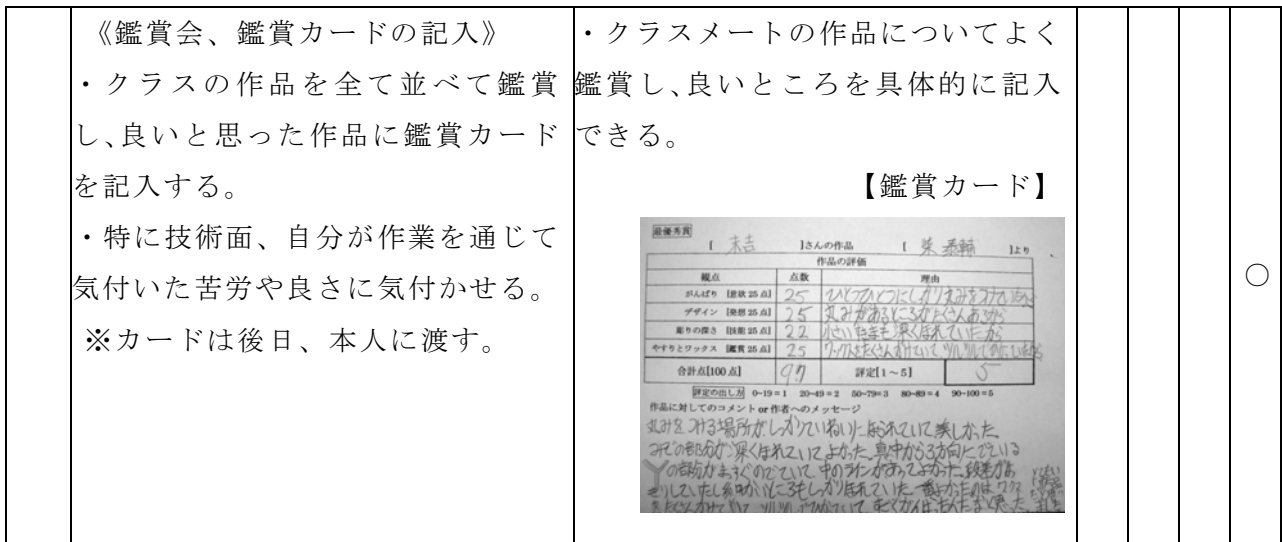 《鑑賞会、鑑賞カードの記入》
・クラスの作品を全て並べて鑑賞
し、良いと思った作品に鑑賞カード
を記入する。
・特に技術面、自分が作業を通じて
気付いた苦労や良さに気付かせる。
※カードは後日、本人に渡す。
・クラスメートの作品についてよく
鑑賞し、良いところを具体的に記入
できる。
【鑑賞カード】
最優秀賞
[ 末吉 ]さんの作品 [ 柴 ]より
作品の評価
観点 点数 理由
がんばり [意欲 25 点] 25 ひとつひとつにしっかり丸みをつけて
デザイン [発想 25 点] 25 丸みがあるところがたくさんあるから
彫りの深さ [技能 25 点] 22 小さい たまも 深くほれていたから
やすりとワックス [鑑賞 25 点] 25 ワックスをたくさんかけていて ツルツルして
合計点[100 点] 97 評定[1～5] 5
評定の出し方 0~19=1 20~49=2 50~79=3 80~89=4 90~100=5
作品に対してのコメント or 作者へのメッセージ
丸みをつける場所がしっかりていねいにほられていて美しかった。
みぞの部分が深くほれていてよかった。真中から3方向にでている
Yの部分がまっすぐのびていて、中のラインがあってよかった。段差がは
っきりしていたし細かいところもしっかりほれていた。一番よかったのは ワックス
をたくさんかけていて ツルツルで
○